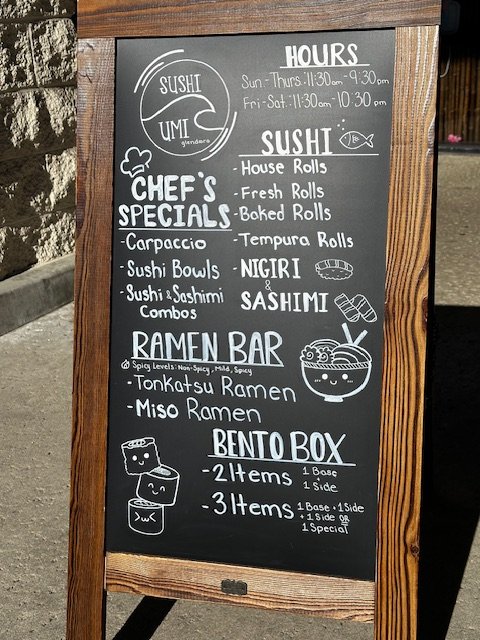 SUSHI
UMI
glendora
HOURS
Sun.-Thurs.:11:30am-9:30pm
Fri-Sat.:11:30am-10:30pm
SUSHI
- House Rolls
- Fresh Rolls
- Baked Rolls
- Tempura Rolls
- NIGIRI
&
SASHIMI
CHEF'S
SPECIALS
- Carpaccio
- Sushi Bowls
- Sushi & Sashimi
Combos
RAMEN BAR
Spicy Levels: Non-Spicy, Mild, Spicy
- Tonkatsu Ramen
- Miso Ramen
BENTO BOX
- 2 Items 1 Base
+
1 Side
- 3 Items 1 Base + 1 Side
+ 1 Side OR
1 Special